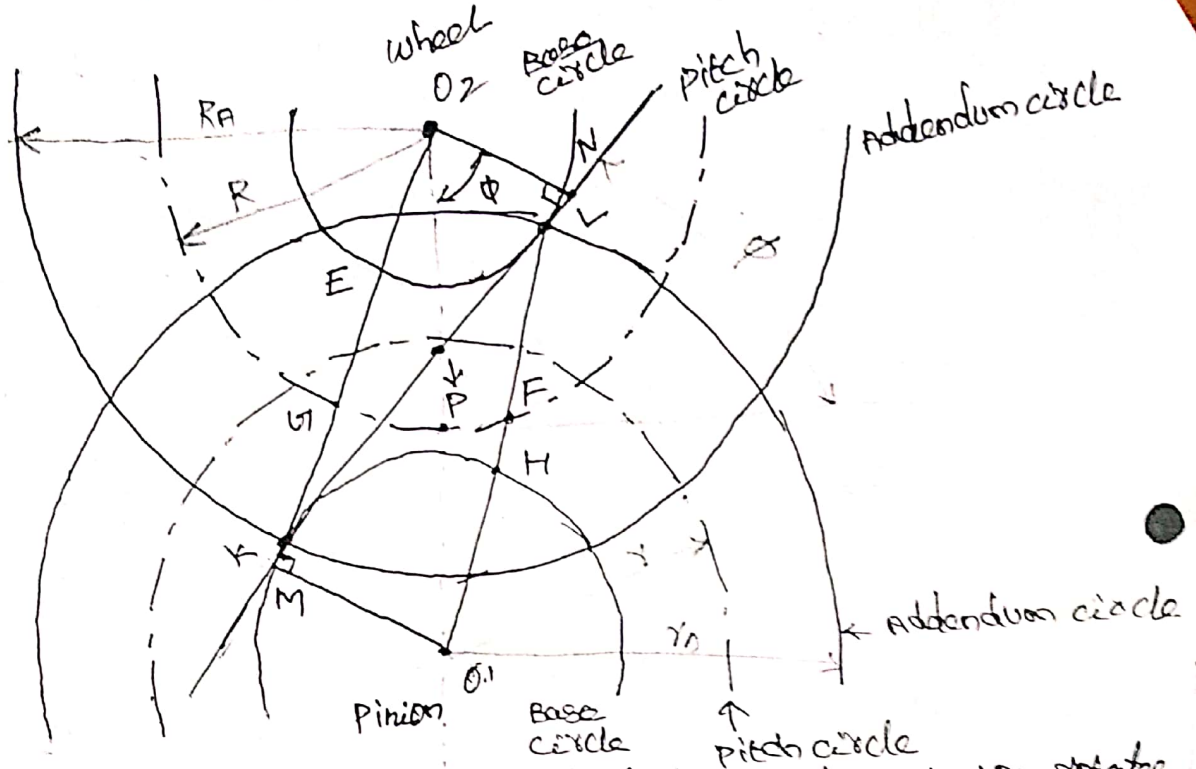 Wheel
O2
Base
circle
Pitch
circle
Addendum circle
RA
R
N
Φ
L
E
G
P
F
H
K
M
r
rA
Addendum circle
O1
Pinion
Base
circle
Pitch circle